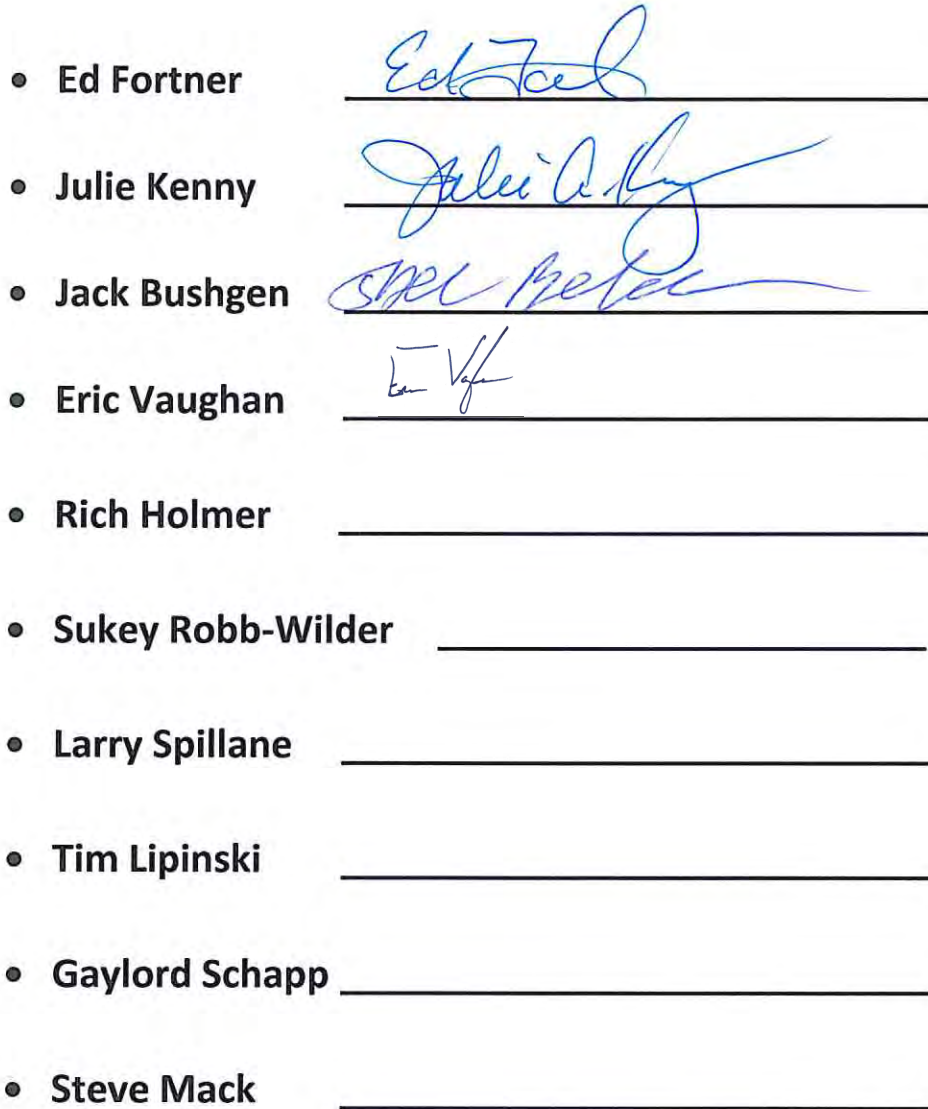 • Ed Fortner
• Julie Kenny Julie A.
• Jack Bushgen
• Eric Vaughan
• Rich Holmer
• Sukey Robb-Wilder
• Larry Spillane
• Tim Lipinski
• Gaylord Schapp
• Steve Mack